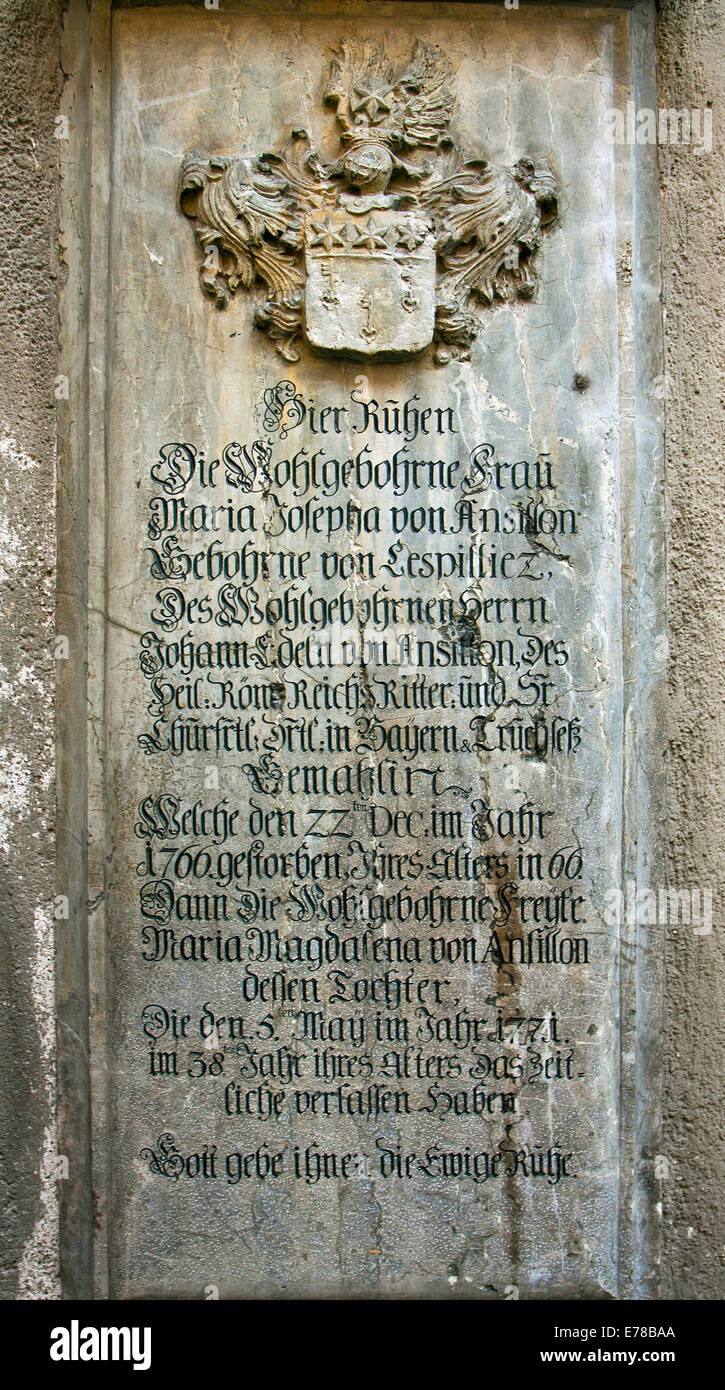 Hier Rūhen
Die Wohlgebohrne Fraū
Maria Josepha von Ansillon
Gebohrne von Lespilliez,
Des Wohlgebohrnen Herrn
Johann Edeln von Ansillon, des
Heil: Röm: Reichs Ritter: ūnd Sr
Chūrfrtl: Drtl: in Bayern & Trūchseß
Gemahlin
Welche den 22ten Dec: im Jahr
1766. gestorben, Ihres Alters in 66.
Dann die Wohlgebohrne Freyle.
Maria Magdalena von Ansillon
dessen Tochter,
Die den 5ten Maÿ im Jahr 1771.
im 38ten Jahr ihres Alters das Zeit-
liche verlassen Haben
Gott gebe ihnen die Ewige Rūhe.
alamy stock photo
E78BAA
www.alamy.com